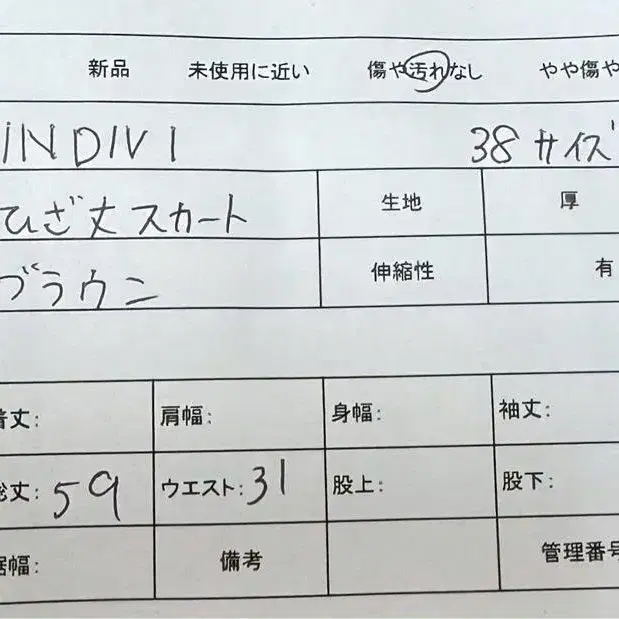 新品 未使用に近い 傷や汚れなし やや傷や
INDIVI 38サイズ
ひざ丈スカート 生地 厚
ブラウン 伸縮性 有
着丈: 肩幅: 身幅: 袖丈:
総丈: 59 ウエスト: 31 股上: 股下:
裾幅: 備考 管理番号